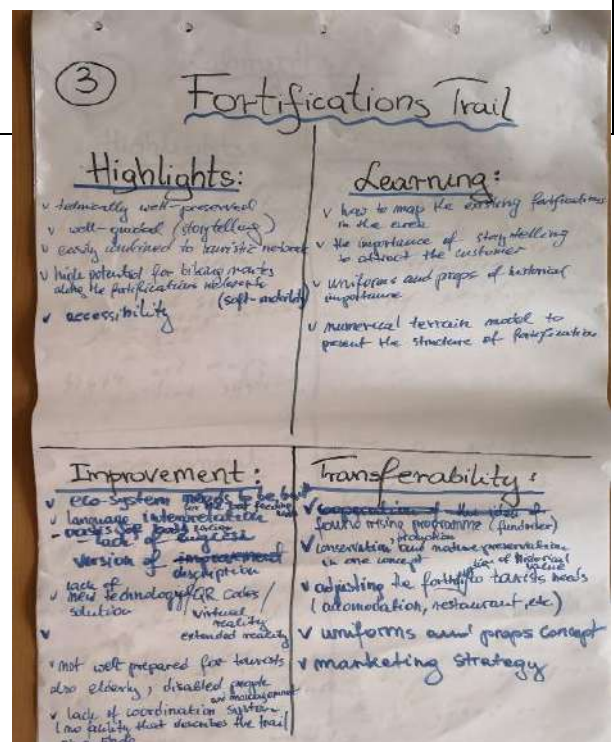 3
Fortifications Trail
Highlights:
v technically well-preserved
v well-guided (storytelling)
v easily combined to touristic network
v high potential for biking routes
along the fortifications network
(soft-mobility)
v accessibility
Learning:
v how to map the existing fortifications
in the area
v the importance of storytelling
to attract the customer
v uniforms and props of historical
importance
v numerical terrain model to
present the structure of fortification
Improvement:
v eco-system needs to be
for the feeding
v language interpretation
lack of english
version of
description
lack of
v new technology/QR codes/
solution
virtual
reality
extended reality
v
v not well prepared for tourists
also elderly, disabled people
v lack of coordination system
(no that describes the trail
Transferability:
v cooperation of the idea of
programme
v conservation and nature preservation
promotion
in one concept
of historical
value
v adjusting the to tourists needs
(accomodation, restaurant, etc.)
v uniforms and props concept
v marketing strategy